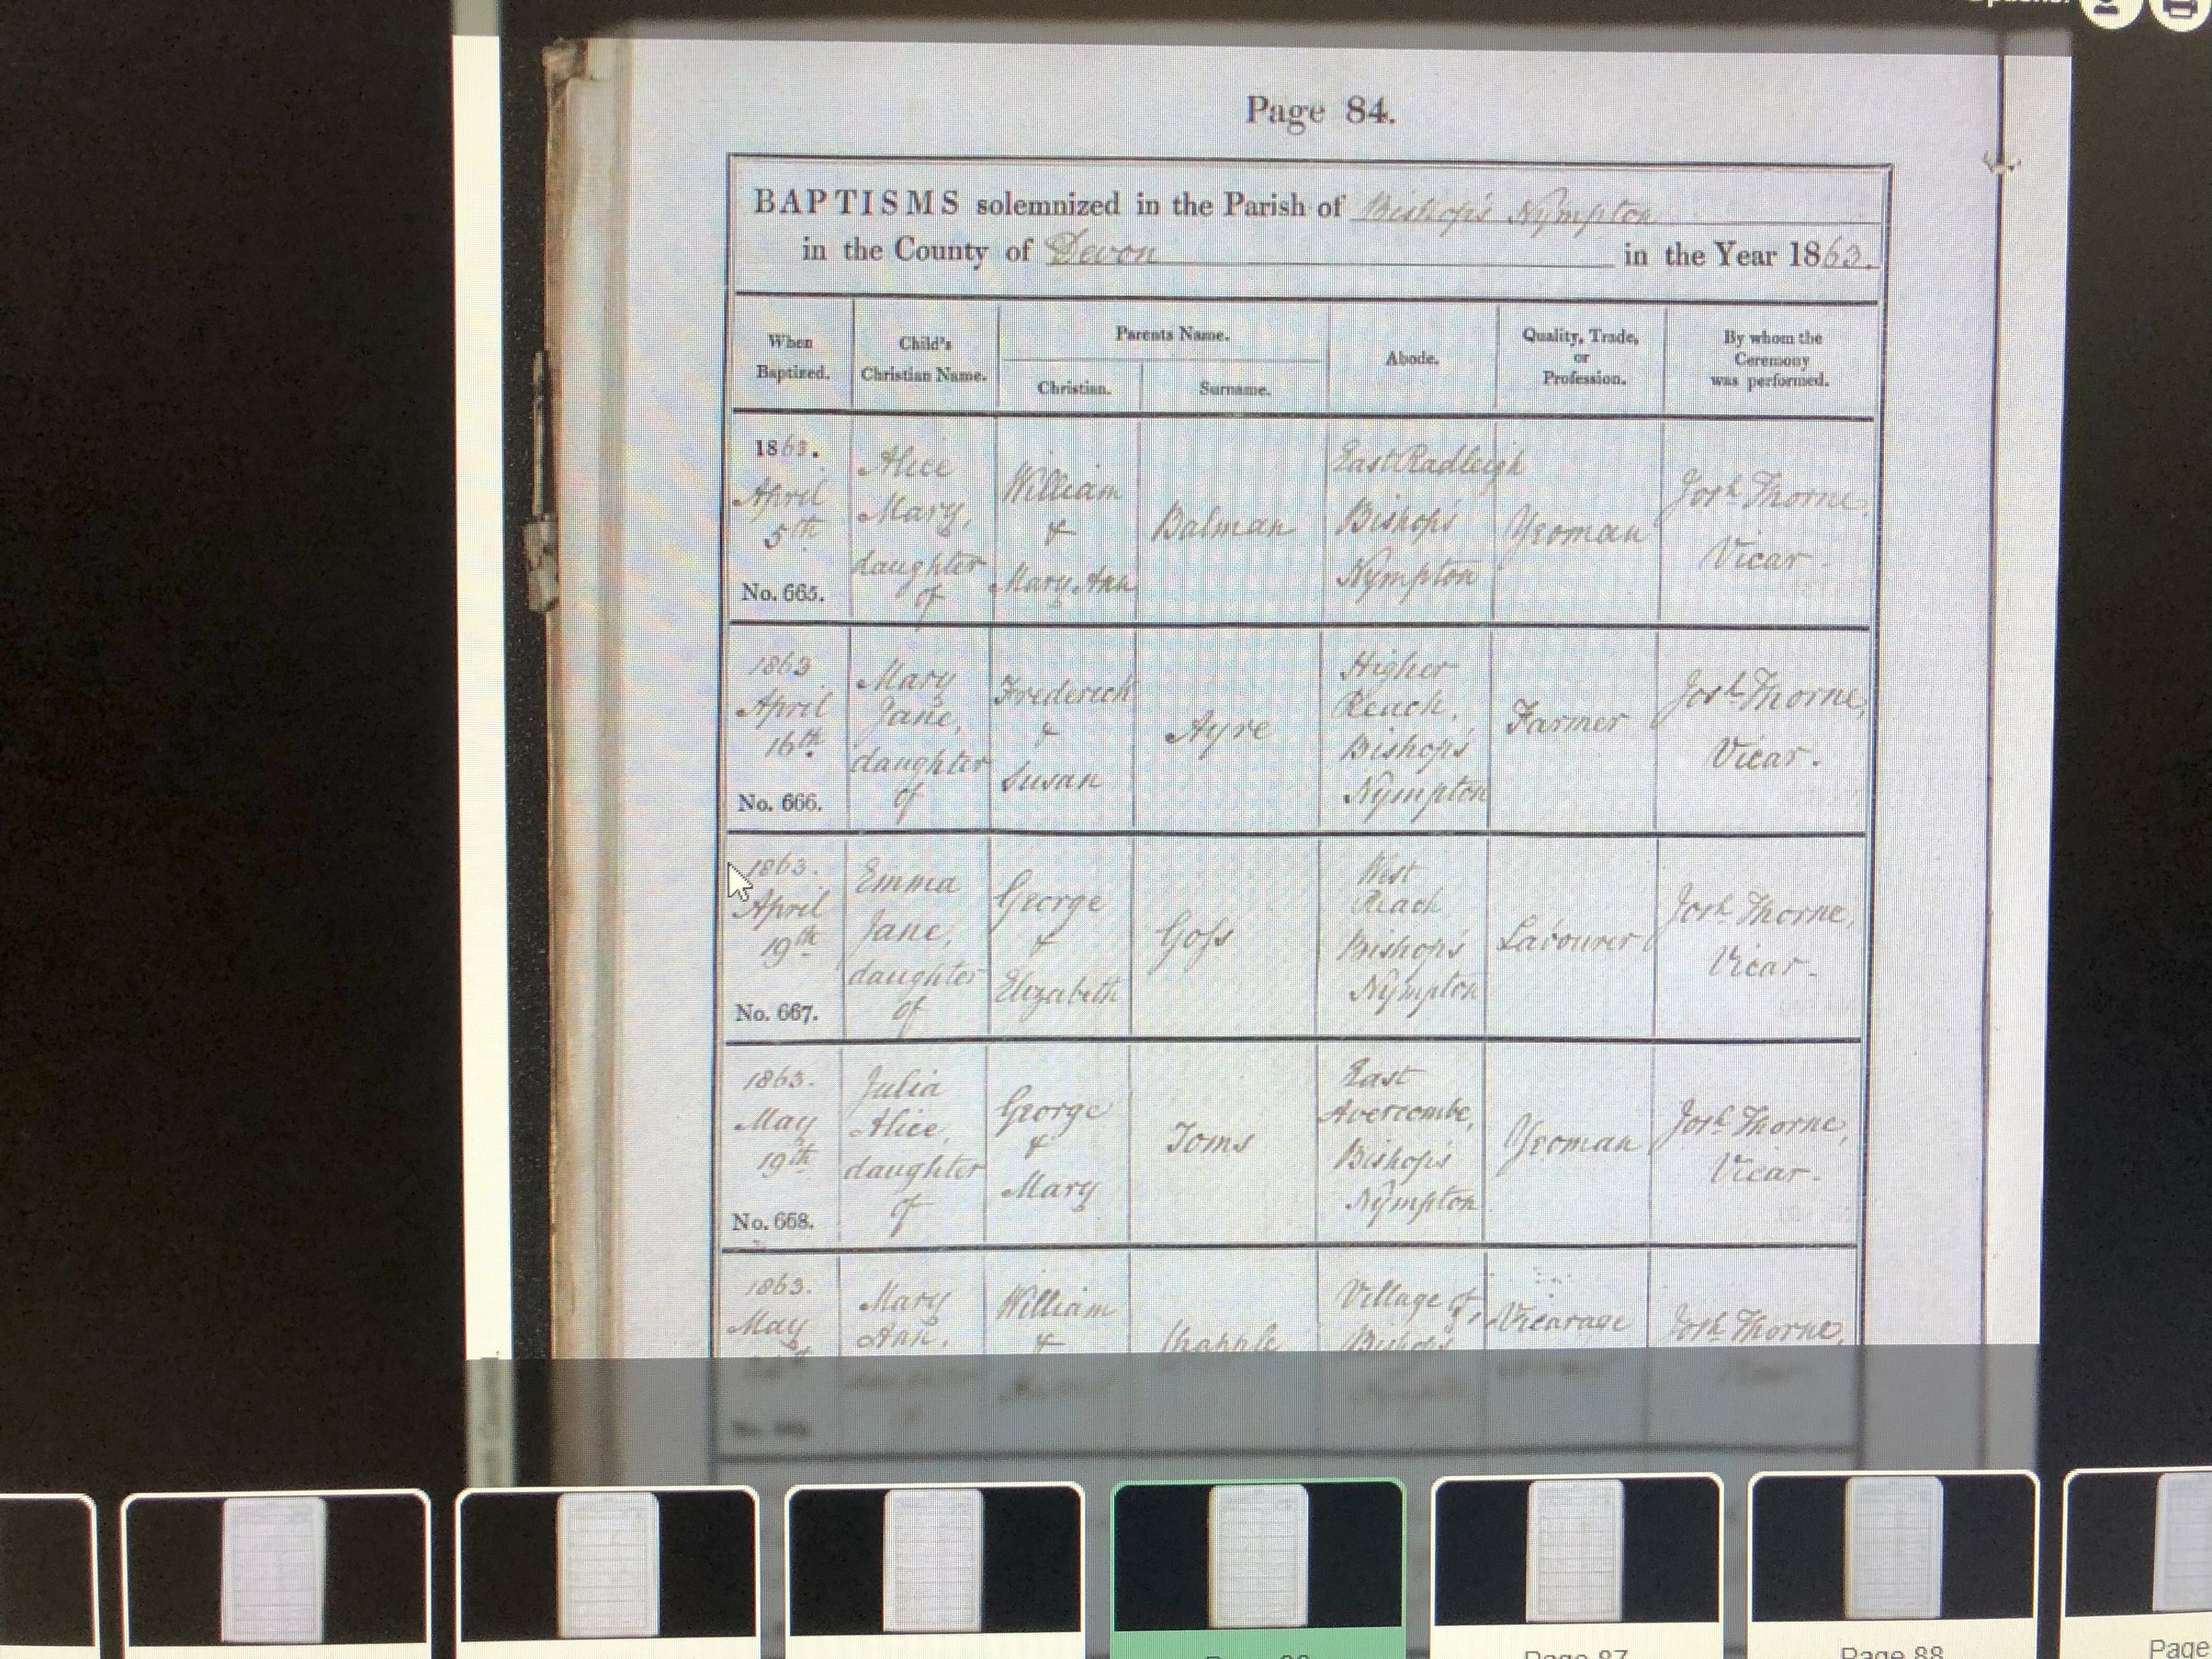 Page 84.
BAPTISMS solemnized in the Parish of Bishop's Nympton
in the County of Devon in the Year 1863.
When Baptized.
Child's Christian Name.
Parents Name.
Christian.
Surname.
Abode.
Quality, Trade, or Profession.
By whom the Ceremony was performed.
1863.
April
5th
No. 665.
Alice
Mary,
daughter
of
William
&
Mary Ann
Balman
East Radleigh
Bishop's
Nympton
Yeoman
Josh Thorne,
Vicar
1863
April
16th
No. 666.
Mary
Jane,
daughter
of
Frederick
&
Susan
Ayre
Higher
Bishop's
Nympton
Farmer
Josh Thorne,
Vicar.
1863.
April
19th
No. 667.
Emma
Jane,
daughter
of
George
&
Elizabeth
Goss
West
Bishop's
Nympton
Labourer
Josh Thorne,
Vicar.
1863.
May
19th
No. 668.
Julia
Alice,
daughter
of
George
&
Mary
Toms
East
Avercombe,
Bishop's
Nympton
Yeoman
Josh Thorne,
Vicar.
1863.
May
Mary
Ann,
William
&
Chapple
Village of
Bishop's
Vicarage
Josh Thorne,
Page 87
Page 88
Page